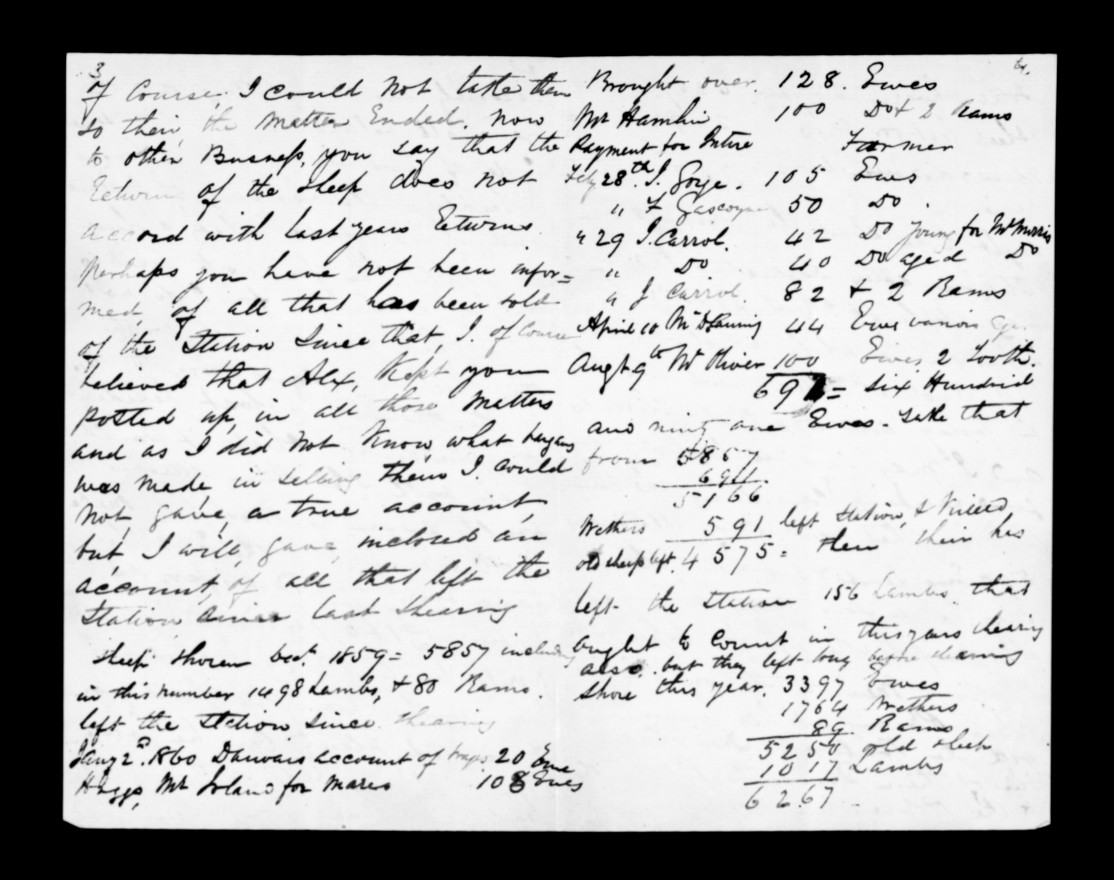 3
of Course, I could not take them
so their the Matter Ended. now
to other Busness, you say that the
Returns of the sheep does not
accord with last years Returns.
Perhaps you have not been infor=
med of all that has been sold
of the Station Since that, I. of Course
believed that Alex, Kept you
posted up, in all those Matters
and as I did not Know, what
was made in selling them I. Could
not, gave, a true account,
but I will, gave, inclosed an
account, of all that left the
Station since last Shearing
Sheep shoren Oct. 1859 = 5857 including
in this number 1498 Lambs, & 80 Rams.
left the Station since shearing
Jany 2d. 1860 account of 20 Ewe
for Mares 108 Ewes
4.
Brought over. 128. Ewes
Mr Hamlin 100 Do & 2 Rams
Payment for Farmer
Feby 28th. J. Goye. 105 Ewes
" F Gascoyne 50 Do.
" 29 J. Carrol. 42 Do Young for Mr Morris
" Do 40 Do aged Do
" J Carrol. 82 & 2 Rams
April 10 44 Ewes various age
Augt 9th Mr Oliver 100 Ewes, 2 Tooth.
691 = Six Hundrid
and ninty one Ewes. Take that
from 5857
691
5166
Wethers 591 left Station, & Killed,
old sheep left 4575 = then their has
left the Station 156 Lambs. that
ought to Count in this years shearing
also. but they left long before shearing
Shore this year. 3397 Ewes
1764 Wethers
89 Rams
5250 old sheep
1017 Lambs
6267